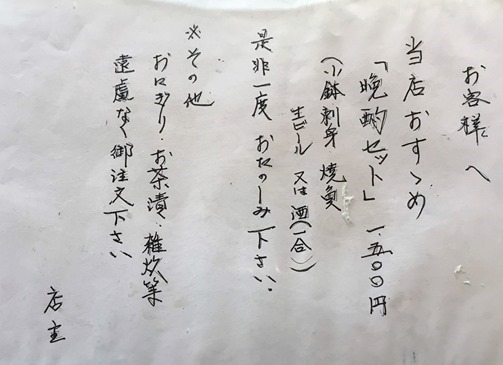 お客様へ
当店おすゝめ
「晩酌セット」 一、五〇〇円
(小鉢 刺身 焼魚
生ビール 又は 酒(一合))
是非一度 おたのしみ下さい。
※その他
おにぎり・お茶漬・雑炊等
遠慮なく御注文下さい
店主